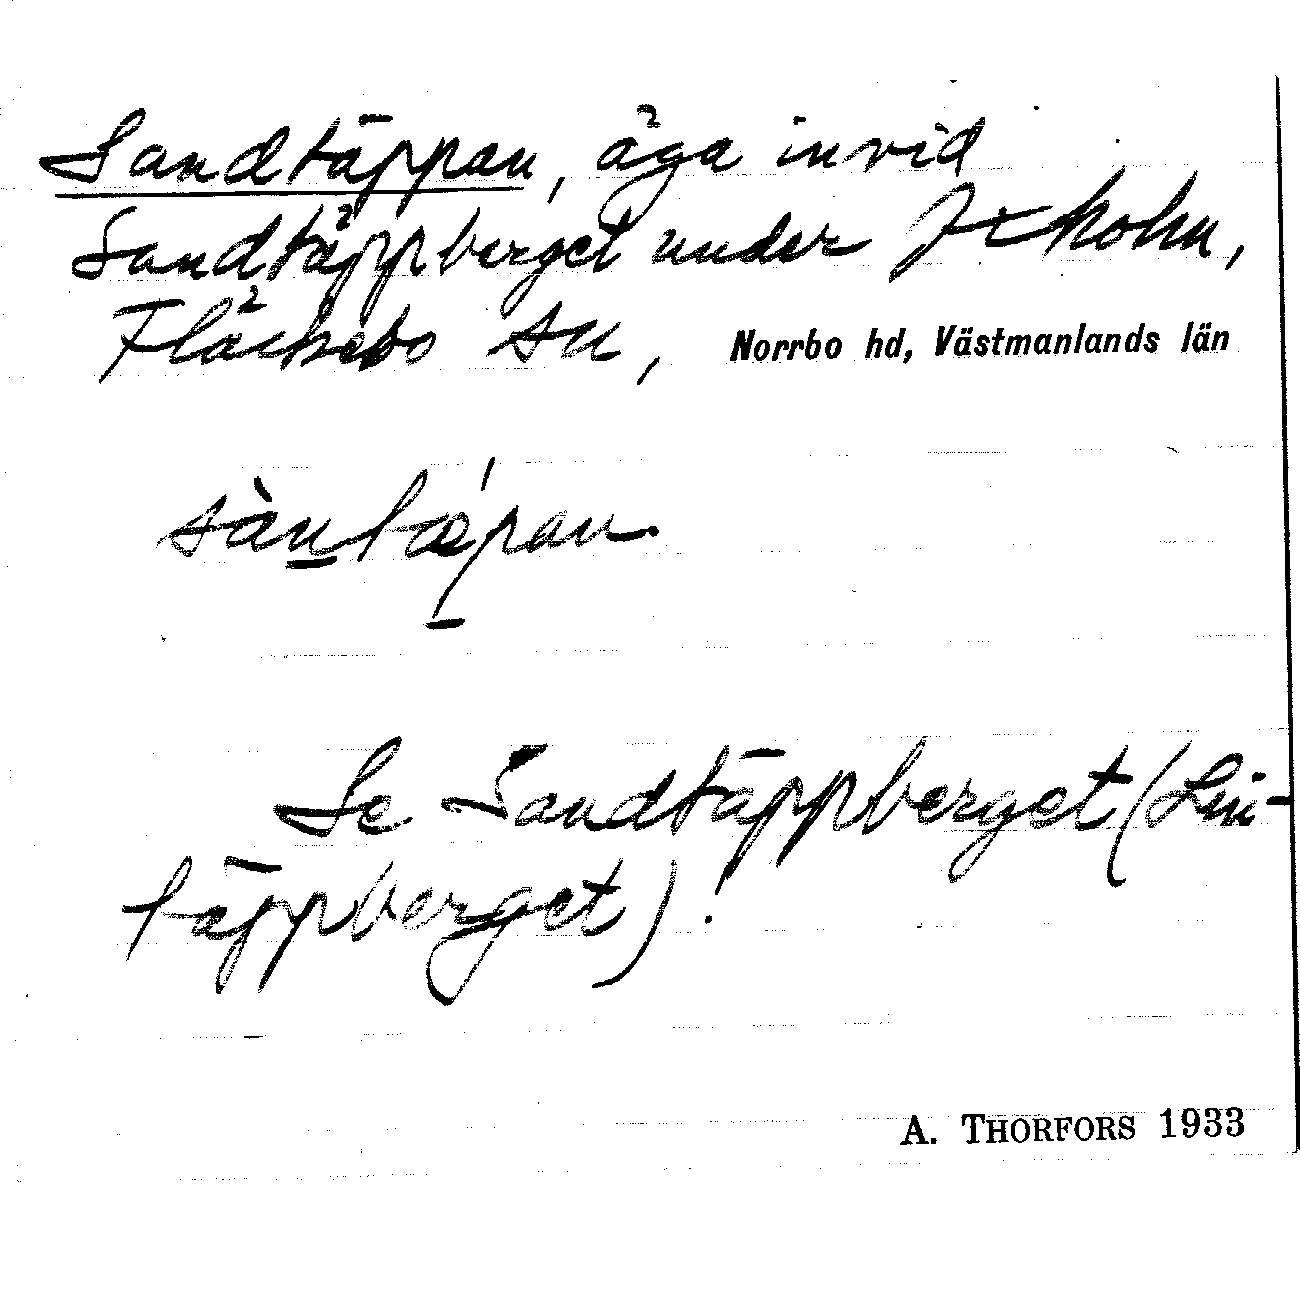 Sandtäppan, äga invid
Sandtäppberget under
Fläckebo sn, Norrbo hd, Västmanlands län
sàntǽpan.
Se Sandtäppberget (Lin-
täppberget).
A. THORFORS 1933